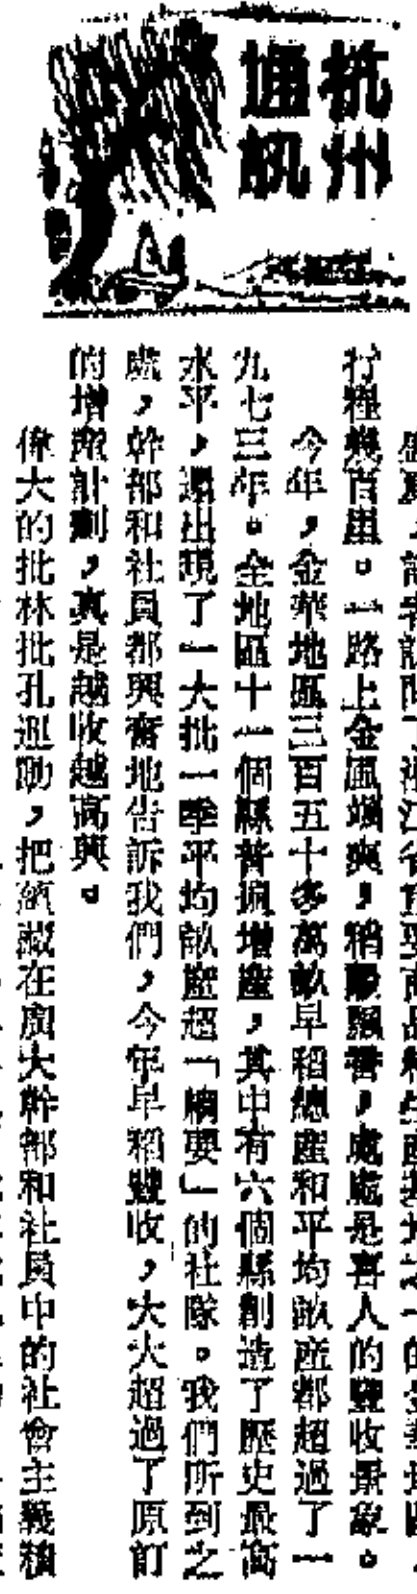 杭州
通訊
盛夏,記者訪問了浙江省重要商品糧生產基地之一的金華地區,
行程幾百里。一路上金風颯爽,稻穀飄香,處處是喜人的豐收景象。
今年,金華地區三百五十多萬畝早稻總產和平均畝產都超過了一
九七三年。全地區十一個縣普遍增產,其中有六個縣創造了歷史最高
水平,還出現了一大批一季平均畝產超「綱要」的社隊。我們所到之
處,幹部和社員都興奮地告訴我們,今年早稻豐收,大大超過了原訂
的增產計劃,真是越收越高興。
偉大的批林批孔運動,把蘊藏在廣大幹部和社員中的社會主義積